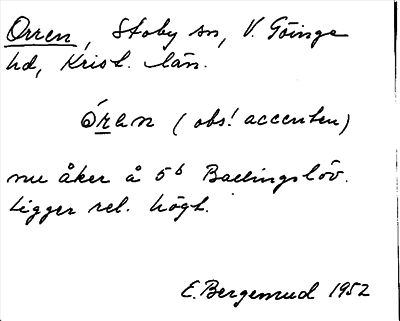 Orren, Stoby sn, V. Göinge
hd, Krist. län.
órən (obs! accenten)
nu åker å 5⁶ Ballingslöv.
Ligger rel. högt.
E. Bergemrud 1952